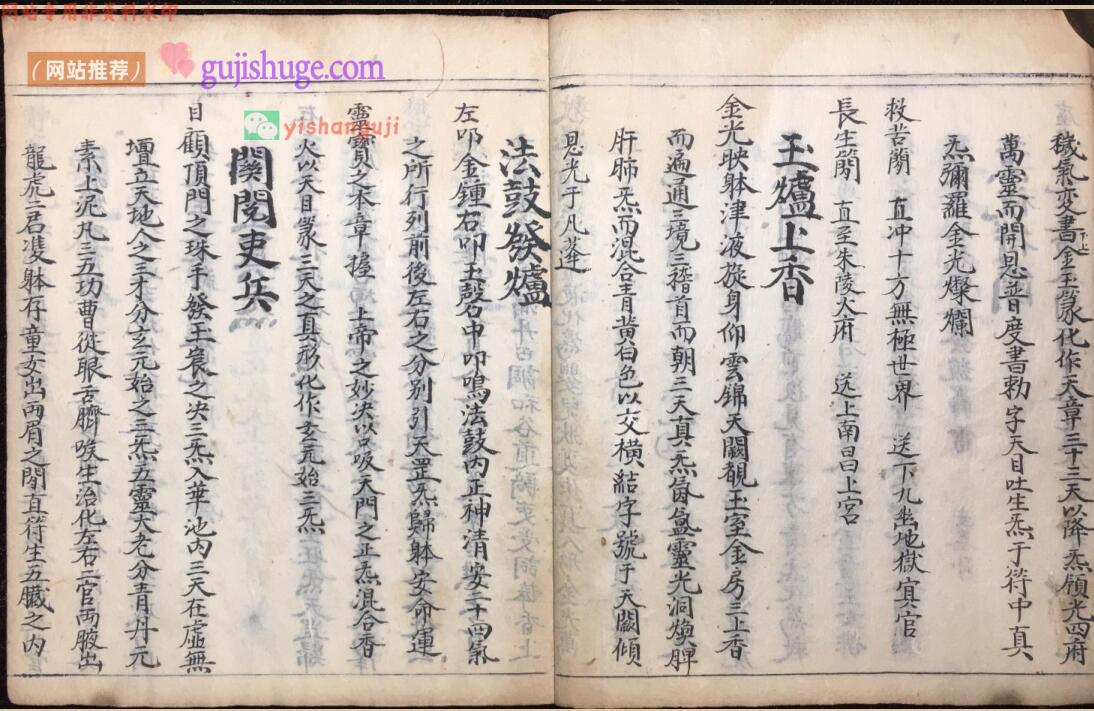 网站专用非资料水印
(网站推荐)
gujishuge.com
yishanguji
穢氣变書金玉篆化作天章三十三天以降炁領光四府
下上
萬靈而開恩普度書勅字天目吐生炁于符中真
炁彌羅金光燦爛
救苦蕳 直冲十方無極世界 送下九幽地獄冥官
長生蕳 直至朱陵火府 送上南昌上宮
玉爐上香
金光映躰津液旅身仰雲錦天闕覩玉室金房三上香
而遍通三境三稽首而朝三天真炁氤氳靈光洞煥脾
肝肺炁而混合青黄白色以交橫結字號于天闕傾
恩光于凡莲
法鼓發爐
左叩金鍾右叩玉磬中叩鳴法鼓内正神清安二十四氣
之所行列前後左右之分别引天罡炁歸躰安命運
靈寳之本章握上帝之妙决以吸天門之正炁混合香
火以天目篆三天之真形化作玄元始三炁
関閲吏兵
目顧頂門之珠手發玉宸之决三炁入華池内三天在虛無
壇立天地人之三才分玄元始之三炁五靈大老分青丹元
素上泥凡三五功曹從眼舌臍喉生治化左右二官两腋出
龍虎二君隻躰存童女出两眉之間直符生五臟之内